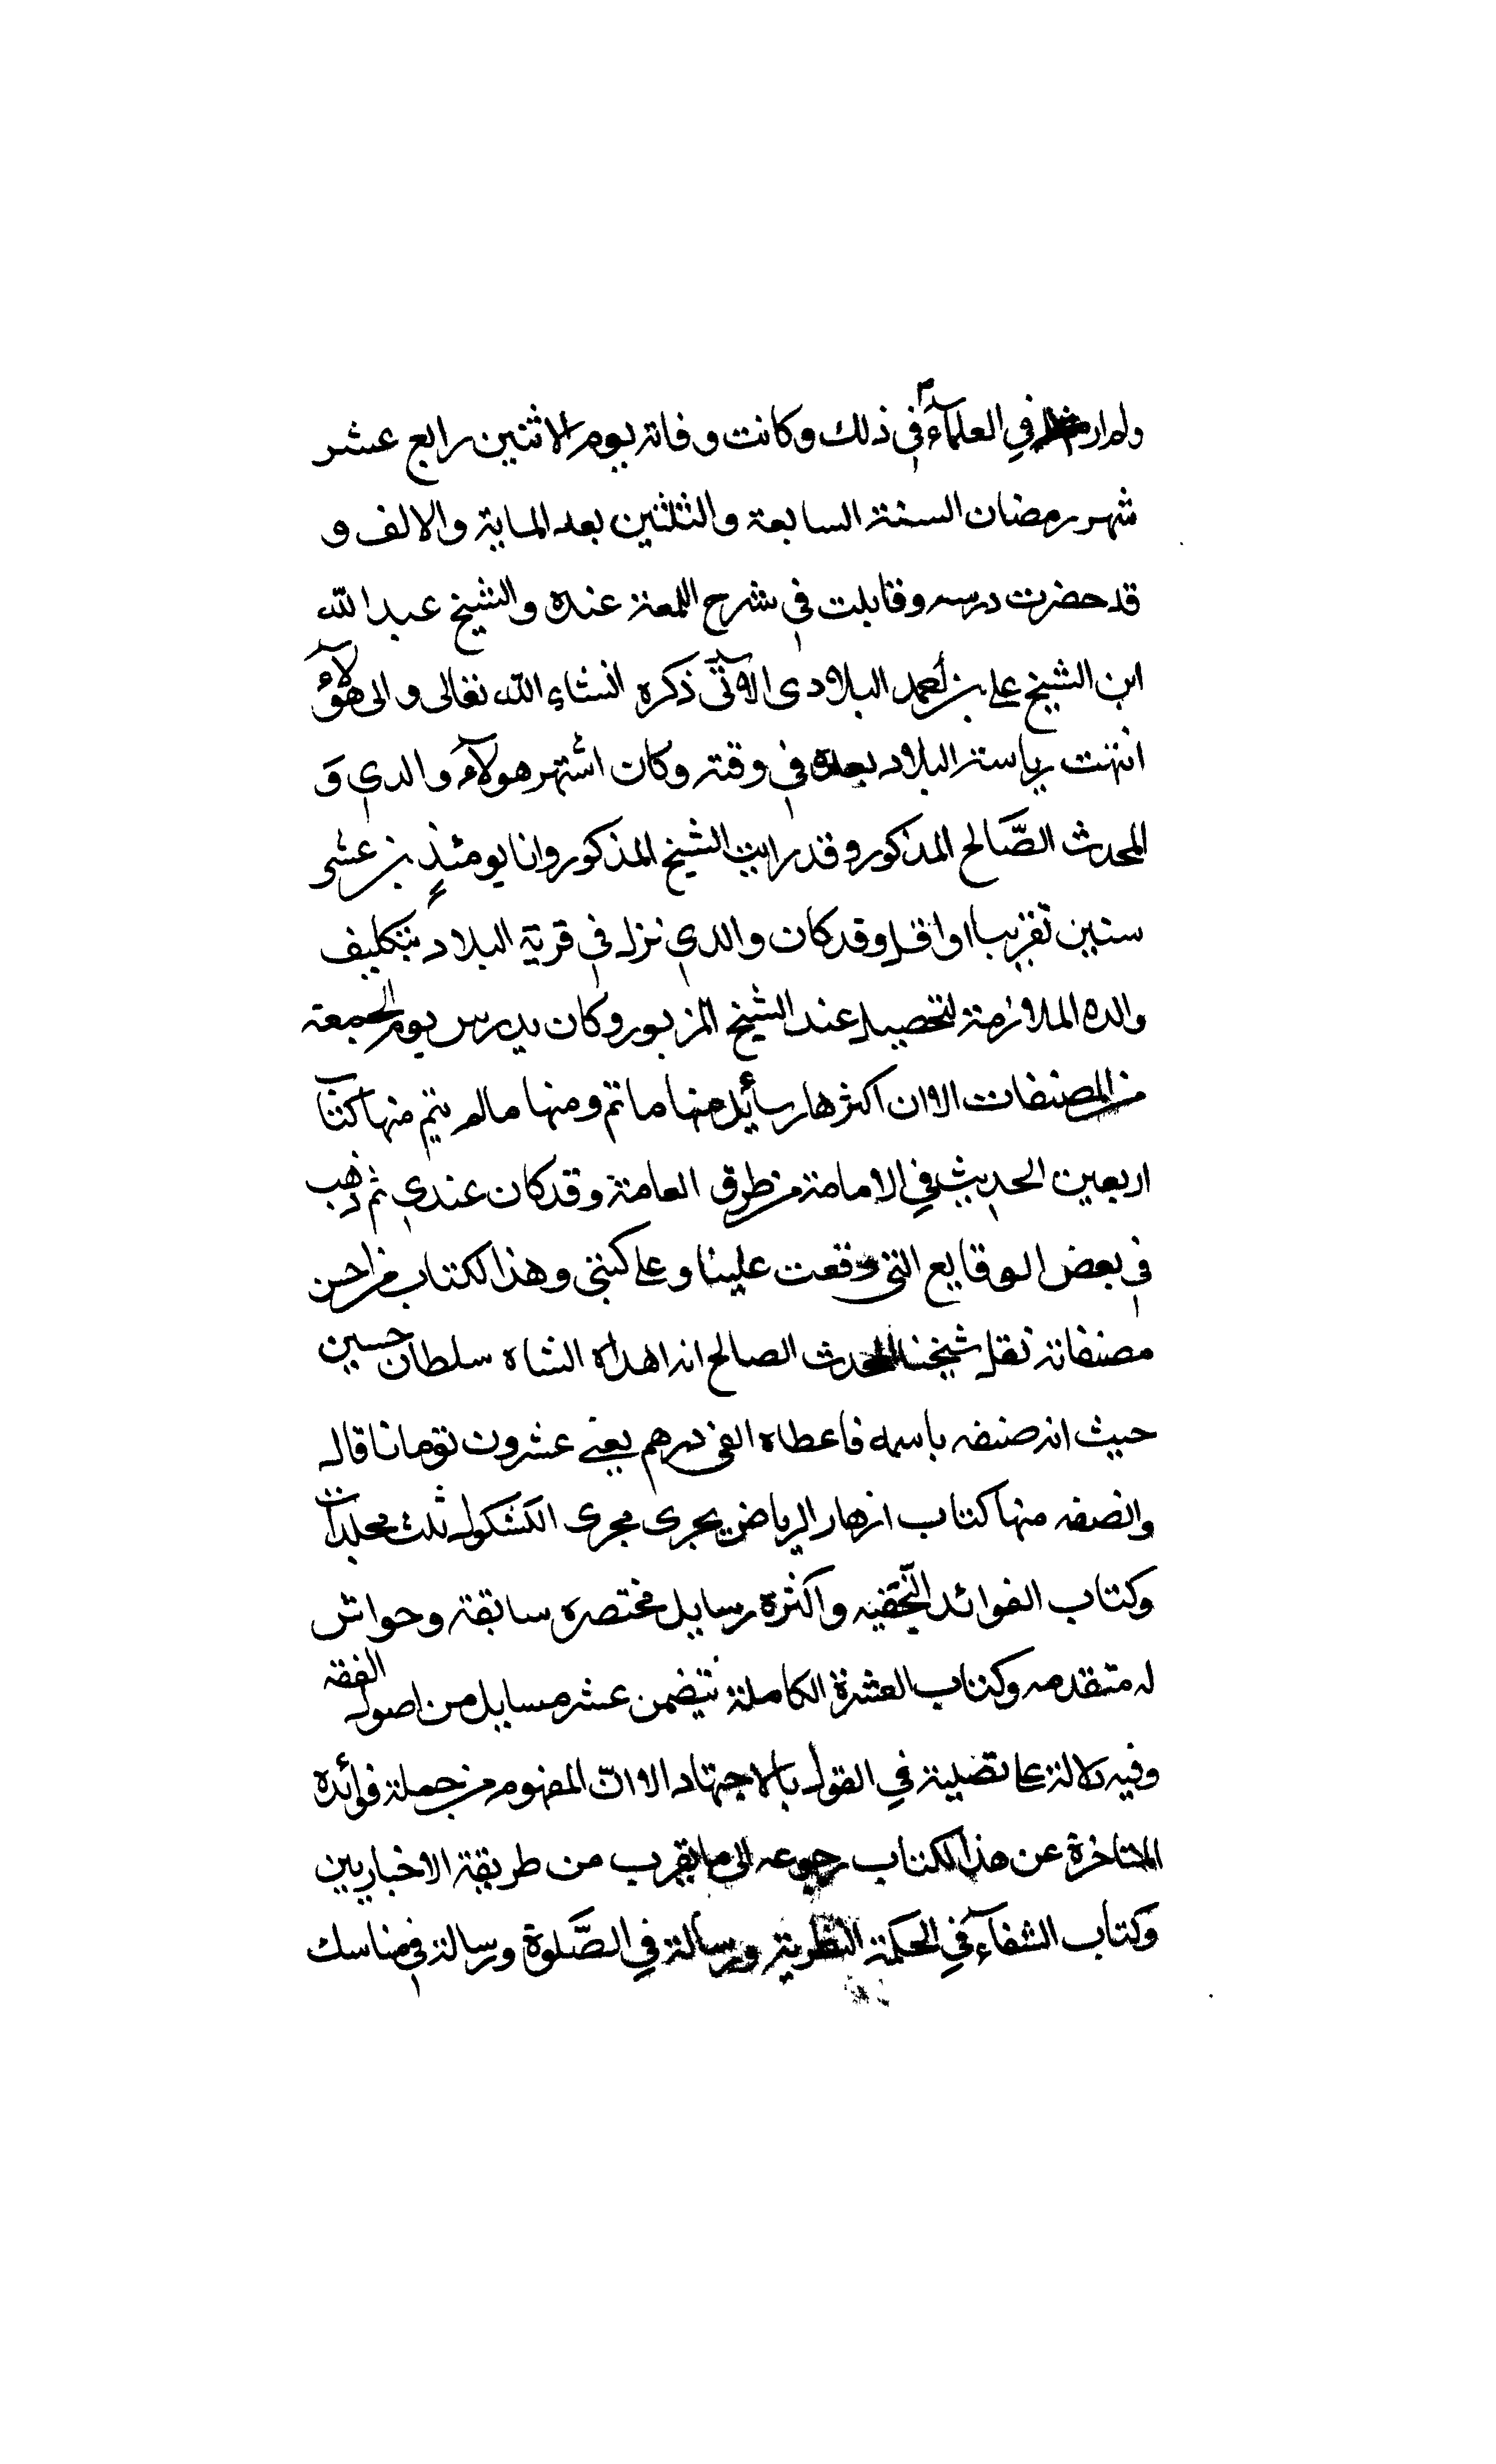 ولم ار مثله في العلماء في ذلك وكانت وفاته يوم الاثنين رابع عشر
شهر رمضان السنة السابعة والثلثين بعد الماية والالف و
قد حضرت درسه وقابلت في شرح اللمعة عنده والشيخ عبد الله
ابن الشيخ علي بن احمد البلادي الآتي ذكره انشاء الله تعالى والى هؤلاء
انتهت رياسة البلاد بعده في وقته وكان اشتهر هولآء والدي وَ
المحدث الصَّالح المذكور وقد رايت الشيخ المذكور وانا يومئذٍ بن عشر
سنين تقريبا او اقل وقد كان والدي نزل في قرية البلاد بتكليف
والده الملازمة لتحصيل عند الشيخ المزبور وكان يدرس يوم الجمعة
من المصنفات الا ان اكثرها رسائل منها ما تم ومنها ما لم يتم منها كتاب
اربعين الحديث في الامامة من طرق العامة وقد كان عندي ثم ذهب
في بعض الوقايع التي وقعت علينا وعلى كتبي وهذا الكتاب من احسن
مصنفاته نقل شيخنا المحدث الصالح انه اهداه الشاه سلطان حسين
حيث انه صنفه باسمه فاعطاه الفي درهم يعني عشرون تومانا قال
وانصفه منها كتاب ازهار الرياض يجرى مجرى الكشكول ثلث مجلدات
وكتاب الفوائد النّجفيه واكثره رسايل مختصره سابقة وحواش
له متقدمه وكتاب العشرة الكاملة تتضمن عشر مسايل من اصول الفقه
وفيه دلالة على تصلبه في القول بالاجتهاد الا انّ المفهوم من جملة فوائده
المتاخرة عن هذا الكتاب رجوعه الى ما يقرب من طريقة الاخباريين
وكتاب الشفآء في الحكمة النظرية ورسالة في الصَّلوة ورسالة في مناسك